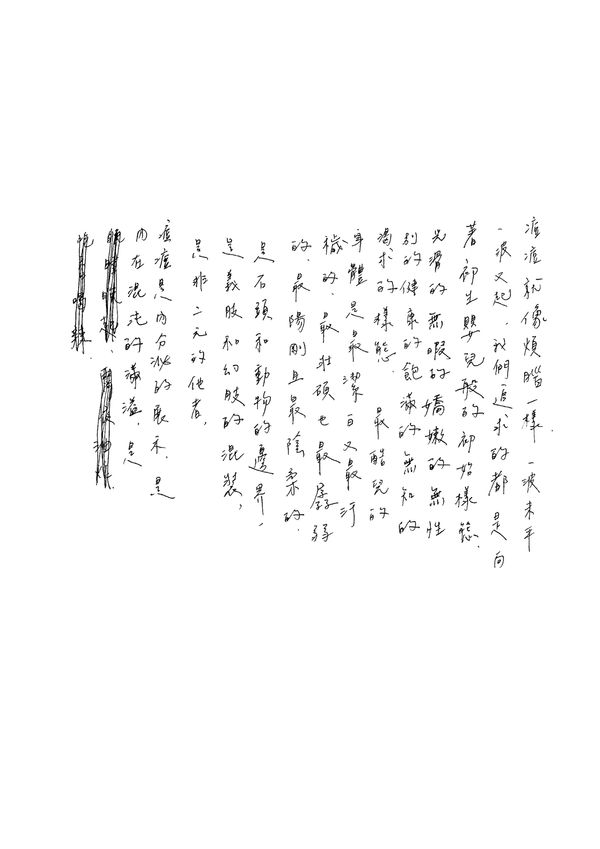 痘痘就像煩腦一樣。一波未平
一波又起,我們追求的都是向
著初生嬰兒般的初始樣態。
光滑的無暇的嬌嫩的無性
別的健康的飽滿的無知的
渴求的樣態。最酷兒的
身體是最潔白又最汙
穢的,最壯碩也最孱弱
的,最陽剛且最陰柔的。
是石頭和動物的邊界,
是義肢和幻肢的混裝,
是非二元的他者。
痘痘是內分泌的,是
內在混沌的滿溢,是